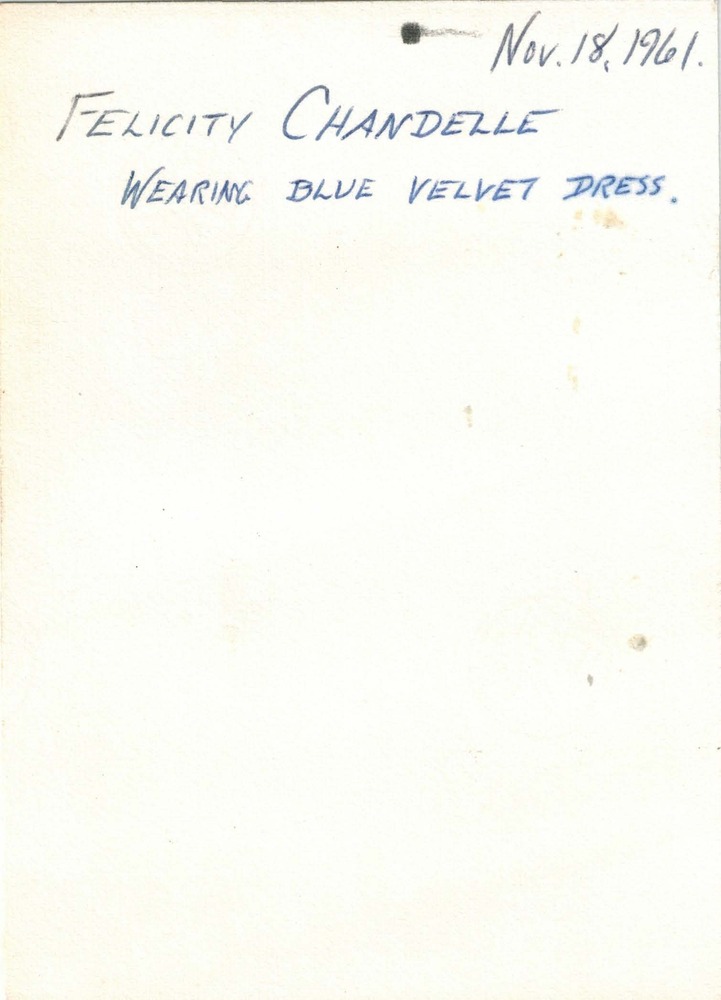 Nov. 18, 1961.
FELICITY CHANDELLE
WEARING BLUE VELVET DRESS.